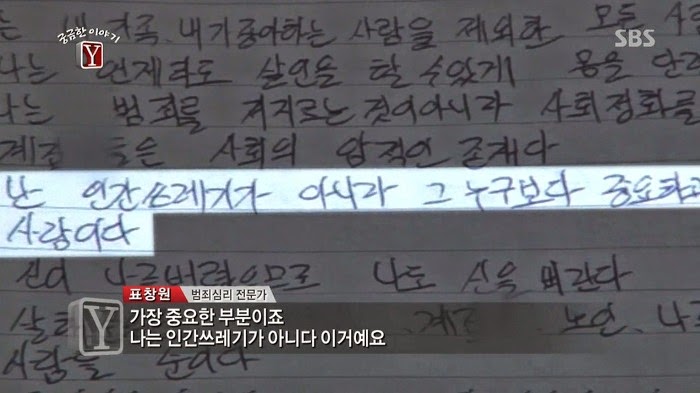 궁금한 이야기
Y
SBS
내가 좋아하는 사람을 제외한 모든
나는 언제라도 살인을 할 수 있게 몸을
나는 범죄를 저지르는 것이 아니라 사회정화를
사회의 암적인 존재다
난 인간쓰레기가 아니라 그 누구보다 중요한
사람이다
신이 나를 버렸으므로 나도 신을 버린다
노인, 나
사람들 순이다
표창원 범죄심리 전문가
가장 중요한 부분이죠
나는 인간쓰레기가 아니다 이거예요
Y